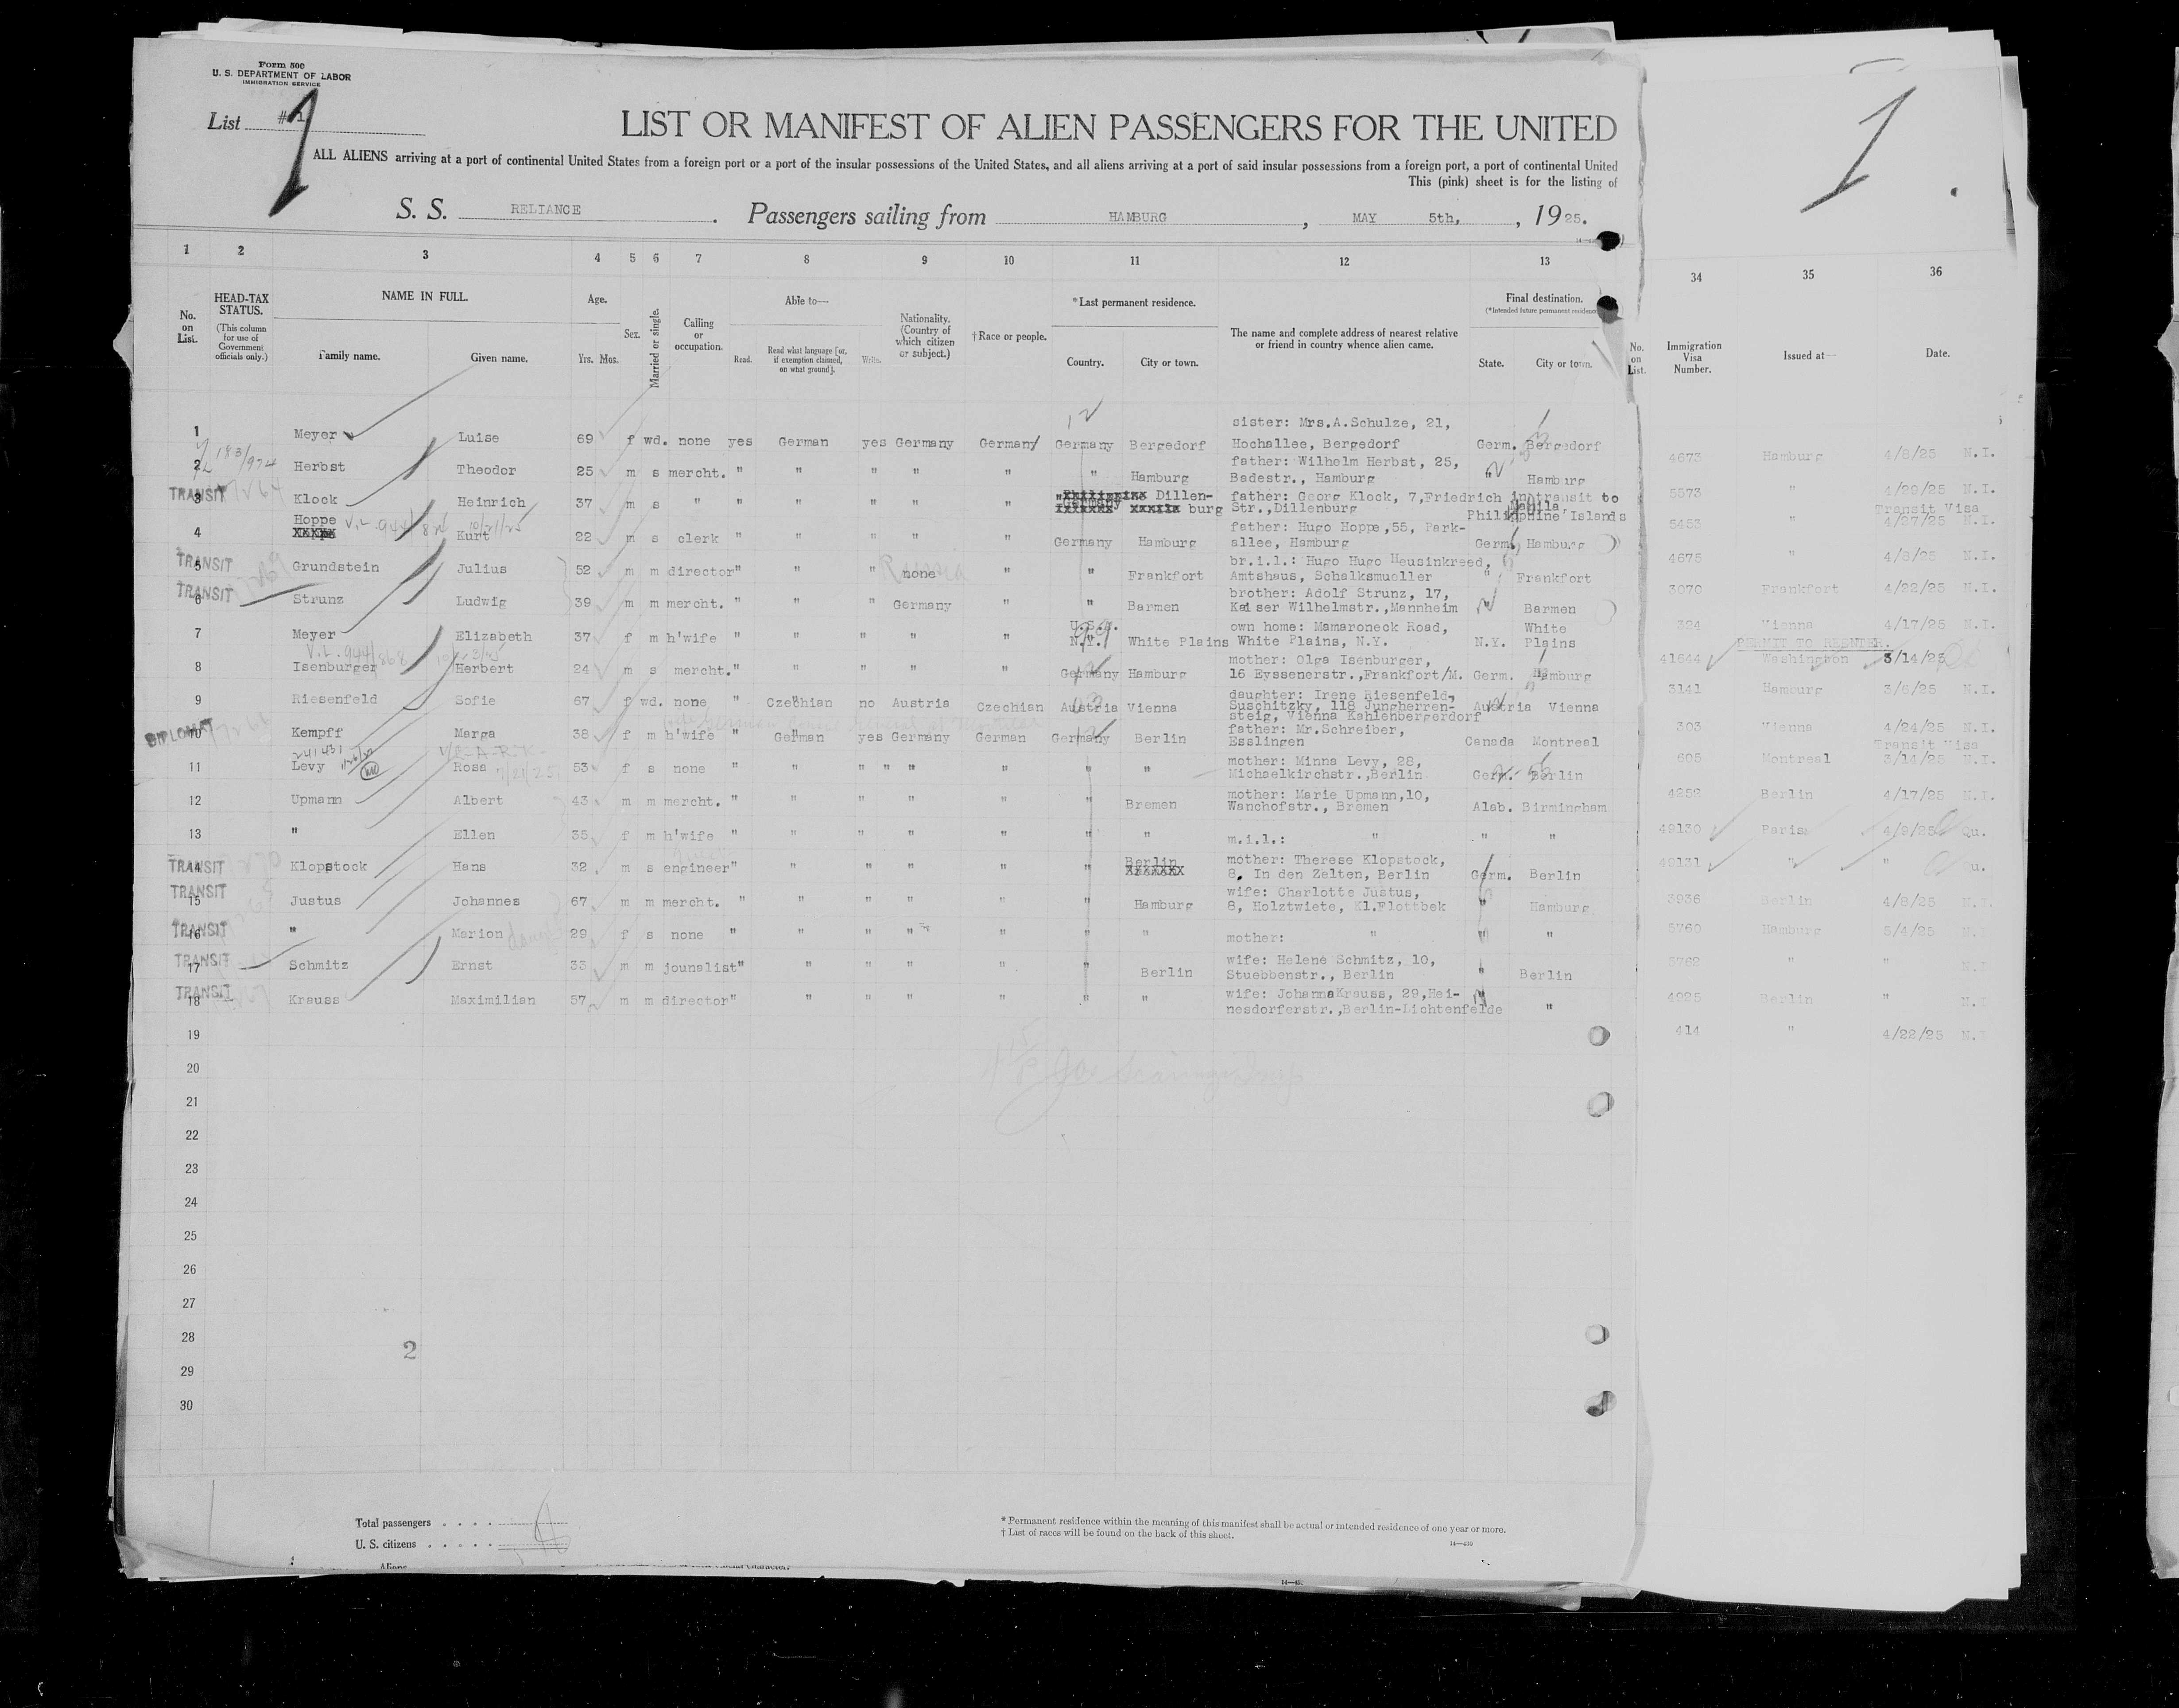 Form 500
U. S. DEPARTMENT OF LABOR
IMMIGRATION SERVICE
List #1
1
1.
LIST OR MANIFEST OF ALIEN PASSENGERS FOR THE UNITED
ALL ALIENS arriving at a port of continental United States from a foreign port or a port of the insular possessions of the United States, and all aliens arriving at a port of said insular possessions from a foreign port, a port of continental United
This (pink) sheet is for the listing of
S. S. RELIANCE. Passengers sailing from HAMBURG, MAY 5th, , 1925.
1 2 3 4 5 6 7 8 9 10 11 12 13 34 35 36
No. on List.
HEAD-TAX STATUS.
(This column for use of Government officials only.)
NAME IN FULL.
Family name. Given name.
Age.
Yrs. Mos.
Sex.
Married or single.
Calling or occupation.
Able to—
Read. Read what language [or, if exemption claimed, on what ground]. Write.
Nationality. (Country of which citizen or subject.)
†Race or people.
*Last permanent residence.
Country. City or town.
The name and complete address of nearest relative or friend in country whence alien came.
Final destination.
(*Intended future permanent residence
State. City or town.
No. on List.
Immigration Visa Number.
Issued at—
Date.
sister: Mrs.A.Schulze, 21,
1 Meyer Luise 69 f wd. none yes German yes Germany German Germany Bergedorf Hochallee, Bergedorf Germ. Bergedorf
183/974
father: Wilhelm Herbst, 25,
2 Herbst Theodor 25 m s mercht. " " " " " " Hamburg Badestr., Hamburg " Hamburg
4673 Hamburg 4/8/25 N.I.
TRANSIT
3 Klock Heinrich 37 m s " " " " " " " Germany Dillen-burg father: Georg Klock, 7,Friedrich Str.,Dillenburg in transit to Manila, Philipphine Islands
5573 " 4/29/25 N.I.
Transit Visa
4 Hoppe Kurt 22 m s clerk " " " " " Germany Hamburg father: Hugo Hoppe,55, Park-allee, Hamburg Germ. Hamburg
V.L. 944/824 10/21/25
5453 " 4/27/25 N.I.
TRANSIT
5 Grundstein Julius 52 m m director " " " none " " Frankfort br.i.l.: Hugo Hugo Heusinkreed, Amtshaus, Schalksmueller " Frankfort
Russia
4675 " 4/8/25 N.I.
TRANSIT
6 Strunz Ludwig 39 m m mercht. " " " Germany " " Barmen brother: Adolf Strunz, 17, Kaiser Wilhelmstr.,Mannheim " Barmen
3070 Frankfort 4/22/25 N.I.
7 Meyer Elizabeth 37 f m h'wife " " " " " U.S.A. N.Y. White Plains own home: Mamaroneck Road, White Plains, N.Y. N.Y. White Plains
324 Vienna 4/17/25 N.I.
PERMIT TO REENTER.
V.L. 944/868
8 Isenburger Herbert 24 m s mercht. " " " " " Germany Hamburg mother: Olga Isenburger, 16 Eyssenerstr.,Frankfort/M. Germ. Hamburg
41644 Washington 3/14/25
9 Riesenfeld Sofie 67 f wd. none " Czechian no Austria Czechian Austria Vienna daughter: Irene Riesenfeld, Suschitzky, 118 Jungherren-steig, Vienna Kahlenbergerdorf Austria Vienna
3141 Hamburg 3/6/25 N.I.
DIPLOMAT
10 Kempff Marga 38 f m h'wife " German yes Germany German Germany Berlin father: Mr.Schreiber, Esslingen Canada Montreal
303 Vienna 4/24/25 N.I.
Transit Visa
11 Levy Rosa 53 f s none " " " " " " " mother: Minna Levy, 28, Michaelkirchstr.,Berlin Germ. Berlin
605 Montreal 3/14/25 N.I.
12 Upmann Albert 43 m m mercht. " " " " " " Bremen mother: Marie Upmann,10, Wanchofstr., Bremen Alab. Birmingham
4252 Berlin 4/17/25 N.I.
13 " Ellen 35 f m h'wife " " " " " " " m.i.l.: " " "
49130 Paris 4/9/25 Qu.
TRANSIT
14 Klopstock Hans 32 m s engineer " " " " " " Berlin mother: Therese Klopstock, 8, In den Zelten, Berlin Germ. Berlin
49131 " " Qu.
TRANSIT
15 Justus Johannes 67 m m mercht. " " " " " " Hamburg wife: Charlotte Justus, 8, Holztwiete, Kl.Flottbek " Hamburg
3936 Berlin 4/8/25 N.I.
TRANSIT
16 " Marion 29 f s none " " " " " " " mother: " " "
5760 Hamburg 5/4/25 N.I.
TRANSIT
17 Schmitz Ernst 33 m m jounalist " " " " " " Berlin wife: Helene Schmitz, 10, Stuebbenstr., Berlin " Berlin
5762 " " N.I.
TRANSIT
18 Krauss Maximilian 57 m m director " " " " " " " wife: JohannaKrauss, 29,Hei-nesdorferstr.,Berlin-Lichtenfelde " "
4925 Berlin " N.I
19
414 " 4/22/25 N.I
20
21
22
23
24
25
26
27
28
2
29
30
Total passengers . . . .
U. S. citizens . . . . .
Aliens
* Permanent residence within the meaning of this manifest shall be actual or intended residence of one year or more.
† List of races will be found on the back of this sheet.
14—430